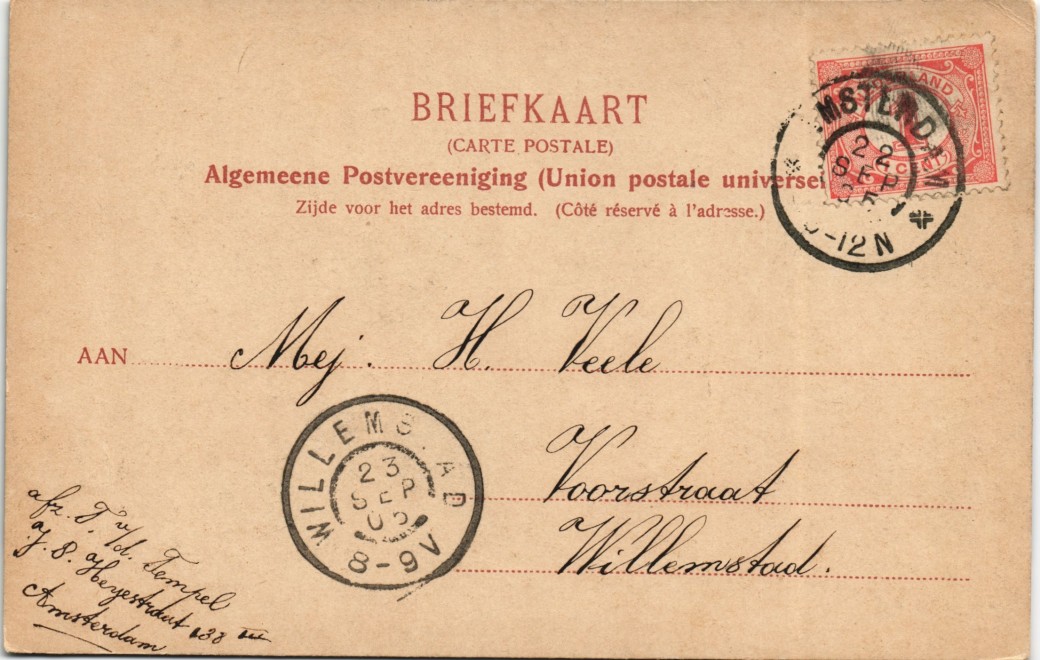 BRIEFKAART
(CARTE POSTALE)
Algemeene Postvereeniging (Union postale universe
Zijde voor het adres bestemd. (Côté réservé à l'adresse.)
MSTERDAM
22
SEP
-12 N
AAN
Mej. H. Veele
Voorstraat
Willemstad.
WILLEMS AD
23
SEP
8-9 V
afr. T. v/d. Tempel
J. P. Heyestraat 138 III
Amsterdam